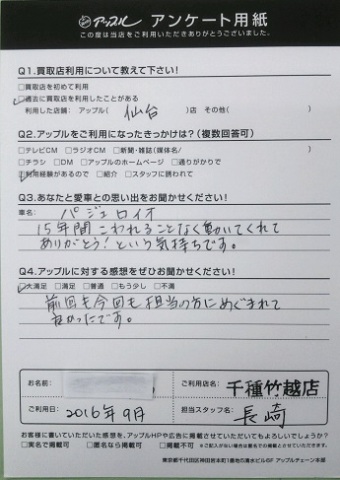 アップル アンケート用紙
この度は当店をご利用いただきありがとうございました。
Q1.買取店利用について教えて下さい!
□買取店を初めて利用
□過去に買取店を利用したことがある
利用した店舗: アップル( 仙台 )店 その他( )
Q2.アップルをご利用になったきっかけは?(複数回答可)
□テレビCM □ラジオCM □新聞・雑誌(媒体名/ )
□チラシ □DM □アップルのホームページ □通りがかりで
□利用経験があるので □紹介 □スタッフに誘われて
Q3.あなたと愛車との思い出をお聞かせください!
車名: パジェロイオ
15年間こわれることなく動いてくれて
ありがとう!という気持ちです。
Q4.アップルに対する感想をぜひお聞かせください!
□大満足 □満足 □普通 □もう少し □不満
前回も今回も担当の方にめぐまれて
良かったです。
お名前:
ご利用店名: 千種竹越店
ご利用日: 2016年9月
担当スタッフ名: 長崎
お客様に書いていただいた感想を、アップルHPや広告に掲載させていただいてもよろしいでしょうか?
□実名で掲載可 □匿名なら掲載可 □掲載不可
※ご記入がない場合は匿名での掲載とさせていただきます。
東京都千代田区神田岩本町1番地の清水ビル6F アップルチェーン本部